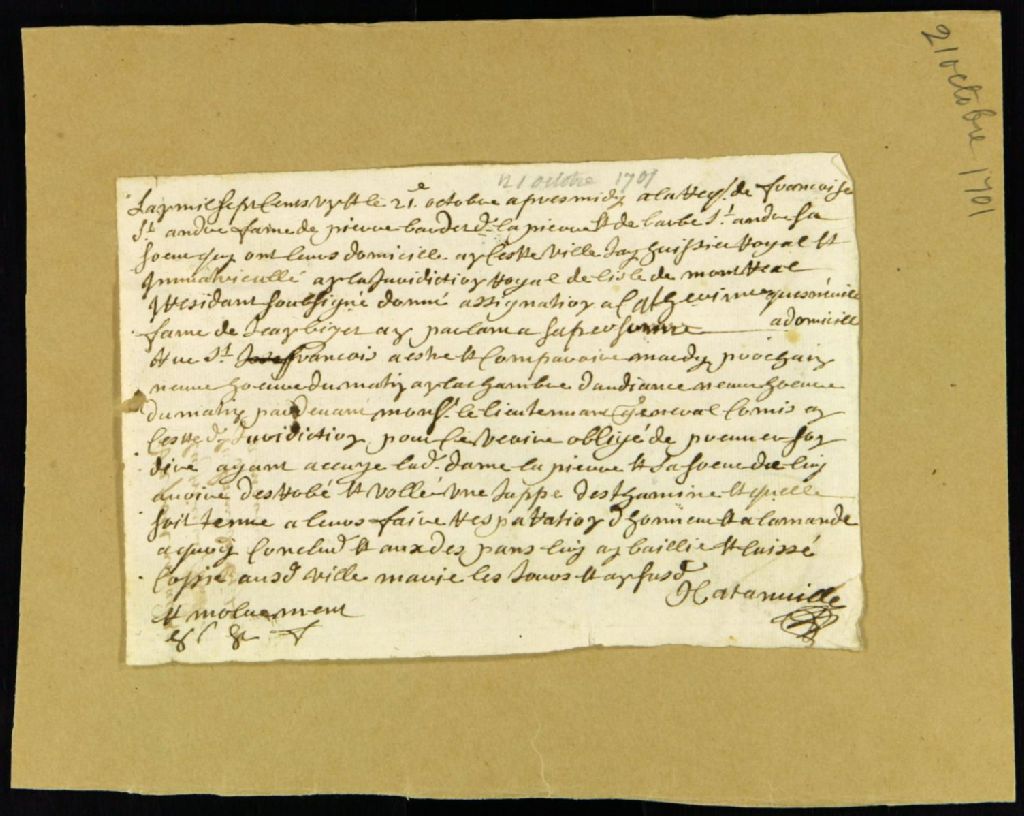 21 octobre 1701
21 octobre 1701
Lan mil sept cens un et le 21.e octobre apres midy a la req.te de francoise
St andre fame de pierre bardet d. la pierre et de barbe St andre sa
soeur quy ont leurs domicille en ceste ville Jay huissier Royal et
Immatricullé en la Juridiction Royal de lisle de montreal
y Residant soubsigné donné assignation a Catherine
fame de Jean en parlant a sa personne a domicille
Rue St francois a estre et Comparoire mardy prochain
neuve heure du matin en la chambre daudiance neuve heure
du matin pardevant monsr. le lieutennant general Comis en
ceste d. Juridiction pour ce veoire obligé de prouver son
dire ayant accuze lad. dame la pierre et sa soeur de luy
avoire desrobé et vollé une Juppe desthamine et quelle
soit tenue a leurs faire Resparation dhonneur et a lamande
a quoy Conclud et aux despans luy ay baillié et laissé
Copie ausd ville marie les Jours et an susd
et
Hatanville